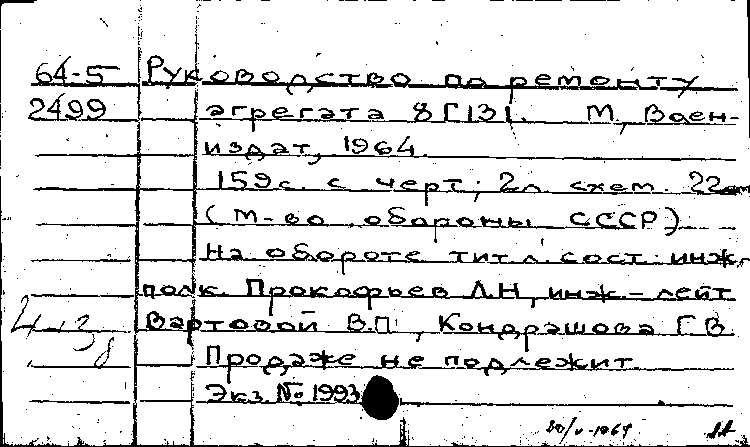 64-5 Руководство по ремонту
2499 агрегата 8Г131. М, Воен-
издат, 1964.
159с. с черт; 2л схем. 22см
(М-во обороны СССР)
На обороте тит л. сост: инж.
полк. Прокофьев Л.Н, инж-лейт
Вартовой В.П., Кондрашова Г.В.
Продаже не подлежит.
Экз. № 1993
20/V-1964